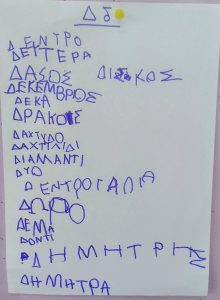 Δ δ
ΔΕΝΤΡΟ
ΔΕΥΤΕΡΑ
ΔΑΣΟΣ ΔΙΣΚΟΣ
ΔΕΚΕΜΒΡΙΟΣ
ΔΕΚΑ
ΔΡΑΚΟΣ
ΔΑΧΤΥΛΟ
ΔΑΧΤΙΛΙΔΙ
ΔΙΑΜΑΝΤΙ
ΔΥΟ
ΔΕΝΤΡΟΓΑΛΙΑ
ΔΩΡΟ
ΔΕΜΑ
ΔΟΝΤΙ
ΔΗΜΗΤΡΗΣ
ΔΗΜΗΤΡΑ